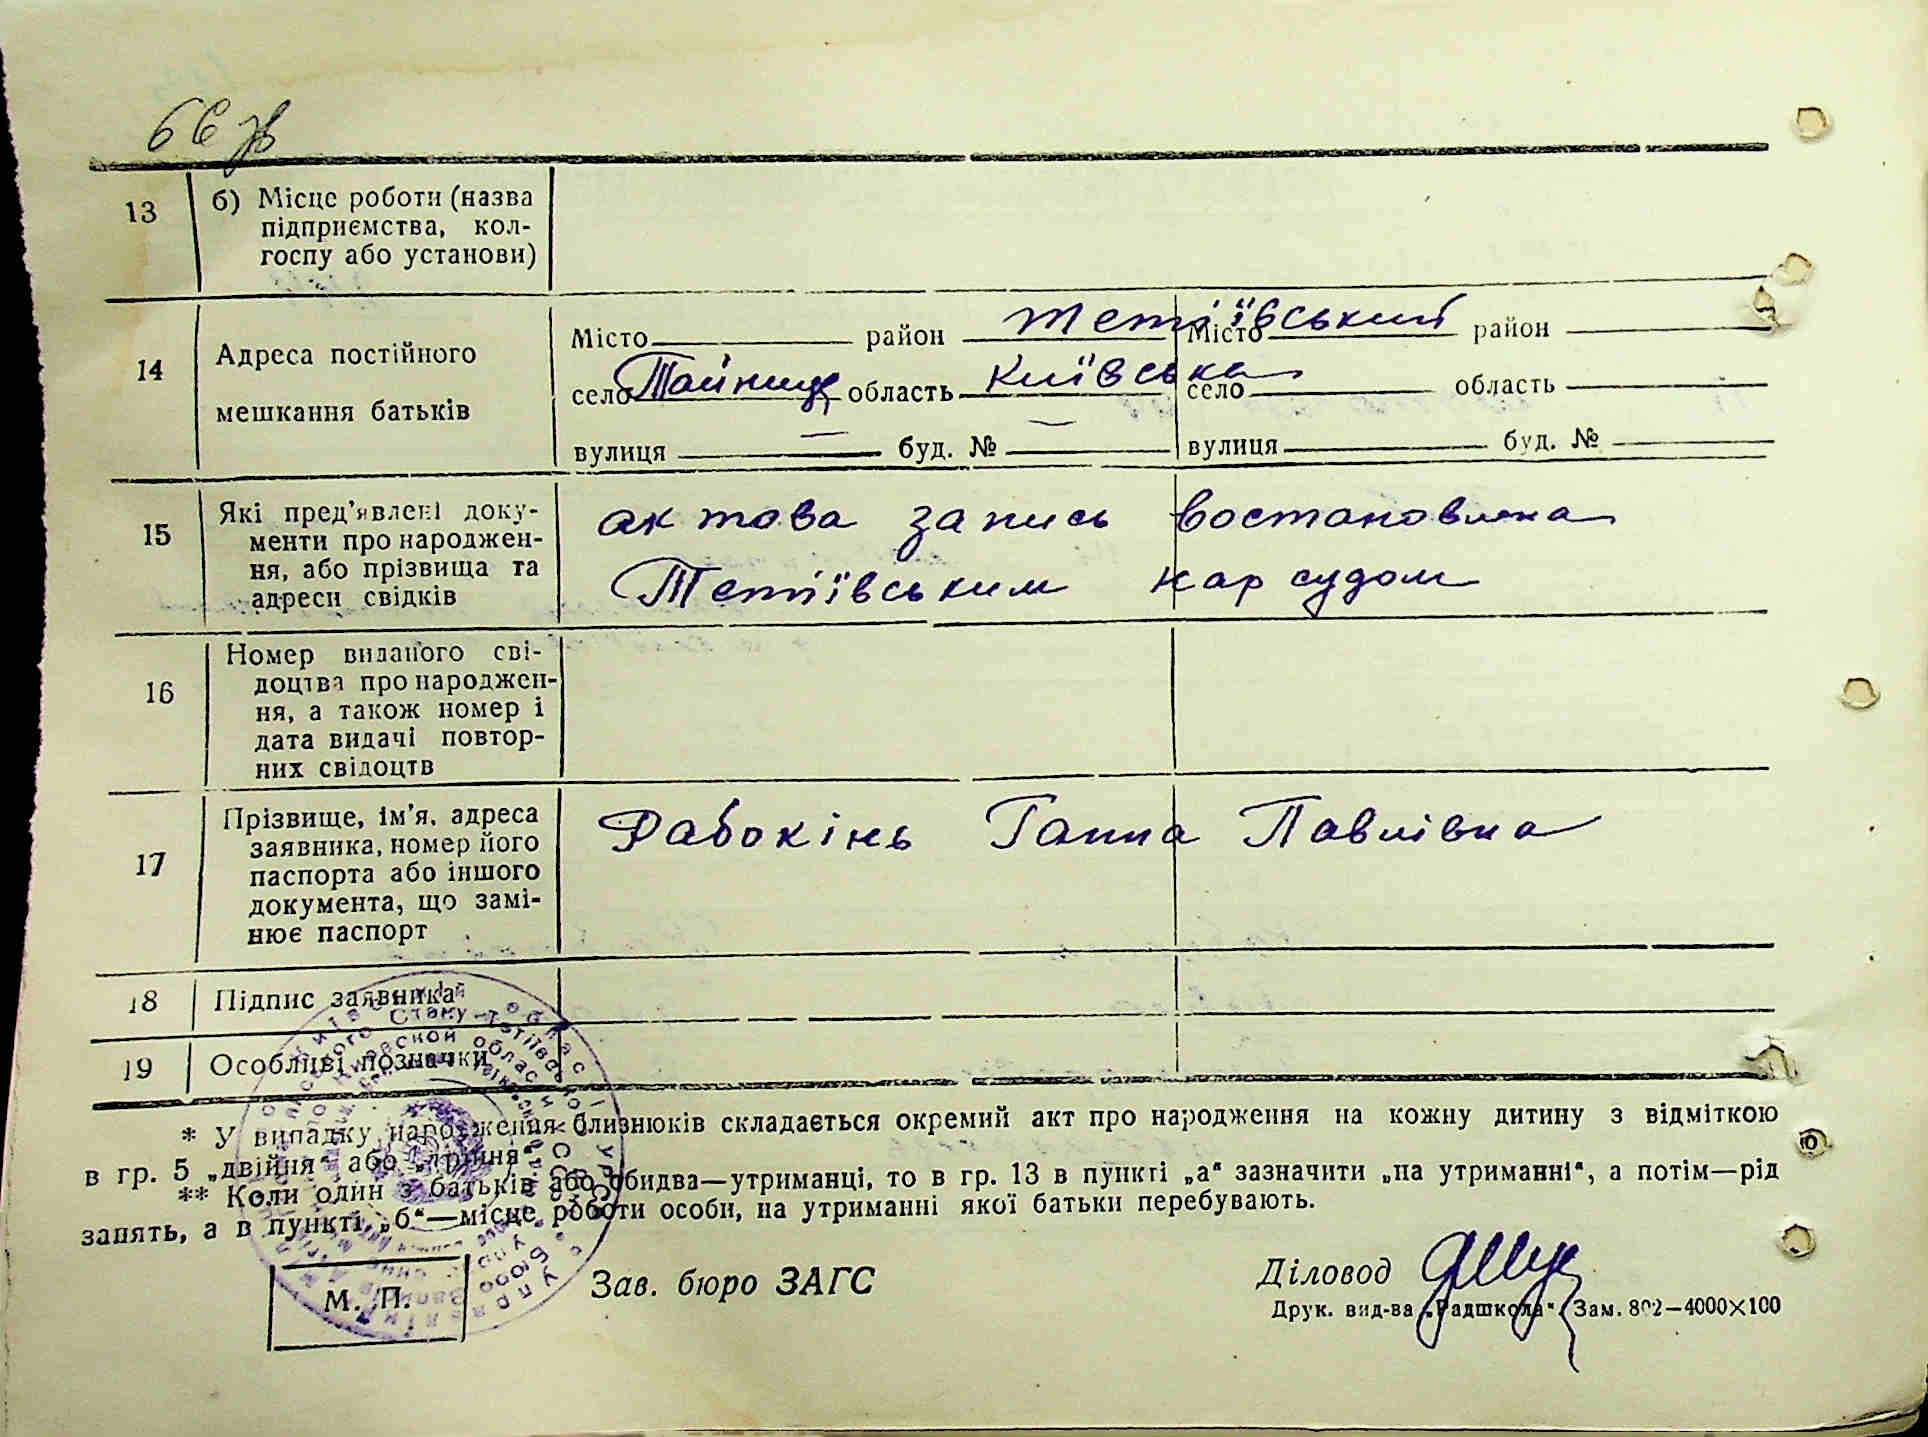 66 зв
13 б) Місце роботи (назва
підприємства, кол-
госпу або установи)
14 Адреса постійного
мешкання батьків
Місто район Тетіївський Місто район
село Тайниця область Київська село область
вулиця — буд. № — вулиця буд. №
15 Які пред'явлені доку-
менти про народжен-
ня, або прізвища та
адреси свідків
актова запись востановлена
Тетіївським нар судом
16 Номер виданого сві-
доцтва про народжен-
ня, а також номер і
дата видачі повтор-
них свідоцтв
17 Прізвище, ім'я, адреса
заявника, номер його
паспорта або іншого
документа, що замі-
нює паспорт
Рабокінь Ганна Павлівна
18 Підпис заявника
19 Особливі позначки
* У випадку народження близнюків складається окремий акт про народження на кожну дитину з відміткою
в гр. 5 „двійня“ або „трійня“.
** Коли один з батьків або обидва—утриманці, то в гр. 13 в пункті „а“ зазначити „на утриманні“, а потім—рід
занять, а в пункті „б“—місце роботи особи, на утриманні якої батьки перебувають.
М. П. Зав. бюро ЗАГС Діловод
Друк. вид-ва „Радшкола“. Зам. 802—4000×100